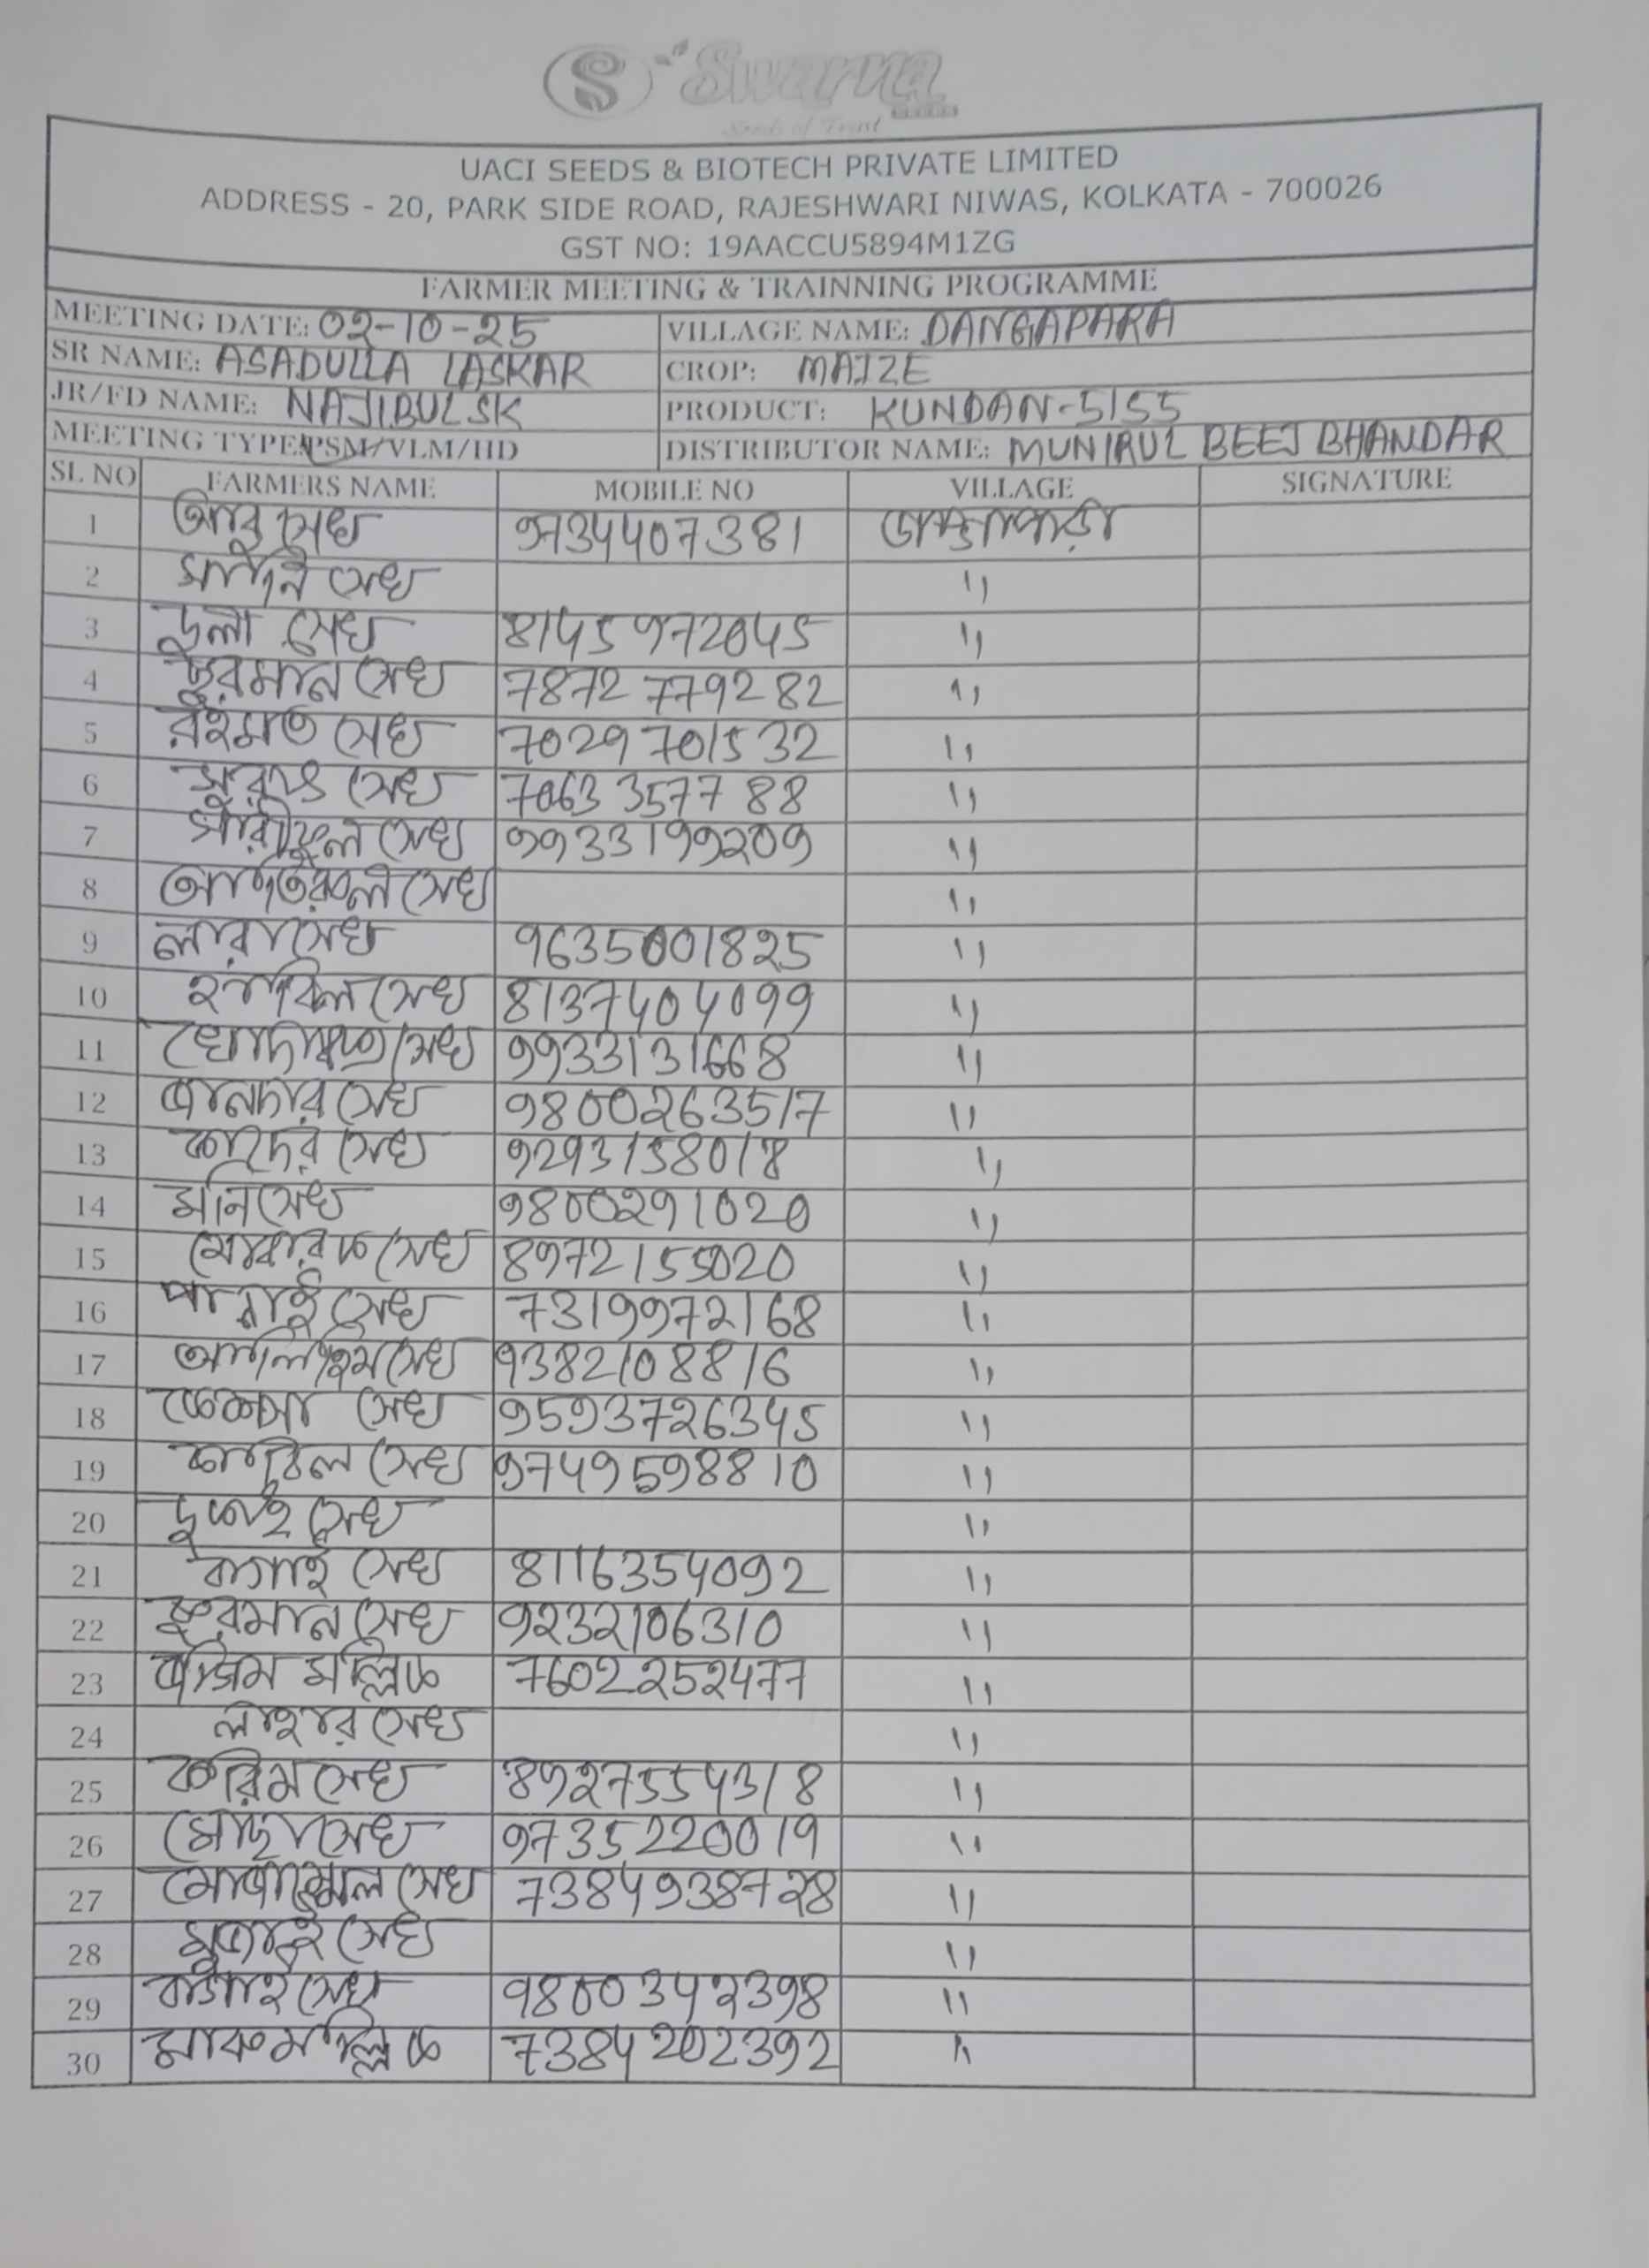 S Swarna
Seeds of Trust
UACI SEEDS & BIOTECH PRIVATE LIMITED
ADDRESS - 20, PARK SIDE ROAD, RAJESHWARI NIWAS, KOLKATA - 700026
GST NO: 19AACCU5894M1ZG
FARMER MEETING & TRAINNING PROGRAMME
MEETING DATE: 02-10-25 VILLAGE NAME: DANGAPARA
SR NAME: ASADULLA LASKAR CROP: MAIZE
JR/FD NAME: NAJIBUL SK PRODUCT: KUNDAN-5155
MEETING TYPE: PSM/VLM/HD DISTRIBUTOR NAME: MUNIRUL BEEJ BHANDAR
SL NO FARMERS NAME MOBILE NO VILLAGE SIGNATURE
1 আবু সেখ 9734407381 ডাঙ্গাপাড়া
2 সেখ "
3 ডুলা সেখ 8145972045 "
4 সেখ 7872779282 "
5 রহমত সেখ 7029701532 "
6 সেখ 7063357788 "
7 সেখ 9933199209 "
8 সেখ "
9 লারা সেখ 9635001825 "
10 সেখ 8137404099 "
11 সেখ 9933131668 "
12 জানদার সেখ 9800263517 "
13 কাদের সেখ 9293158018 "
14 মনি সেখ 9800291020 "
15 মোবারক সেখ 8972155020 "
16 পান্নাই সেখ 7319972168 "
17 সেখ 9382108816 "
18 সেখ 9593726345 "
19 সেখ 9749598810 "
20 সেখ "
21 সেখ 8116354092 "
22 ফুরমান সেখ 9232106310 "
23 মল্লিক 7602252477 "
24 সেখ "
25 করিম সেখ 8927554318 "
26 সেখ 9735220019 "
27 মোজাম্মেল সেখ 7384938728 "
28 সেখ "
29 সেখ 9800342398 "
30 মল্লিক 7384202392 "